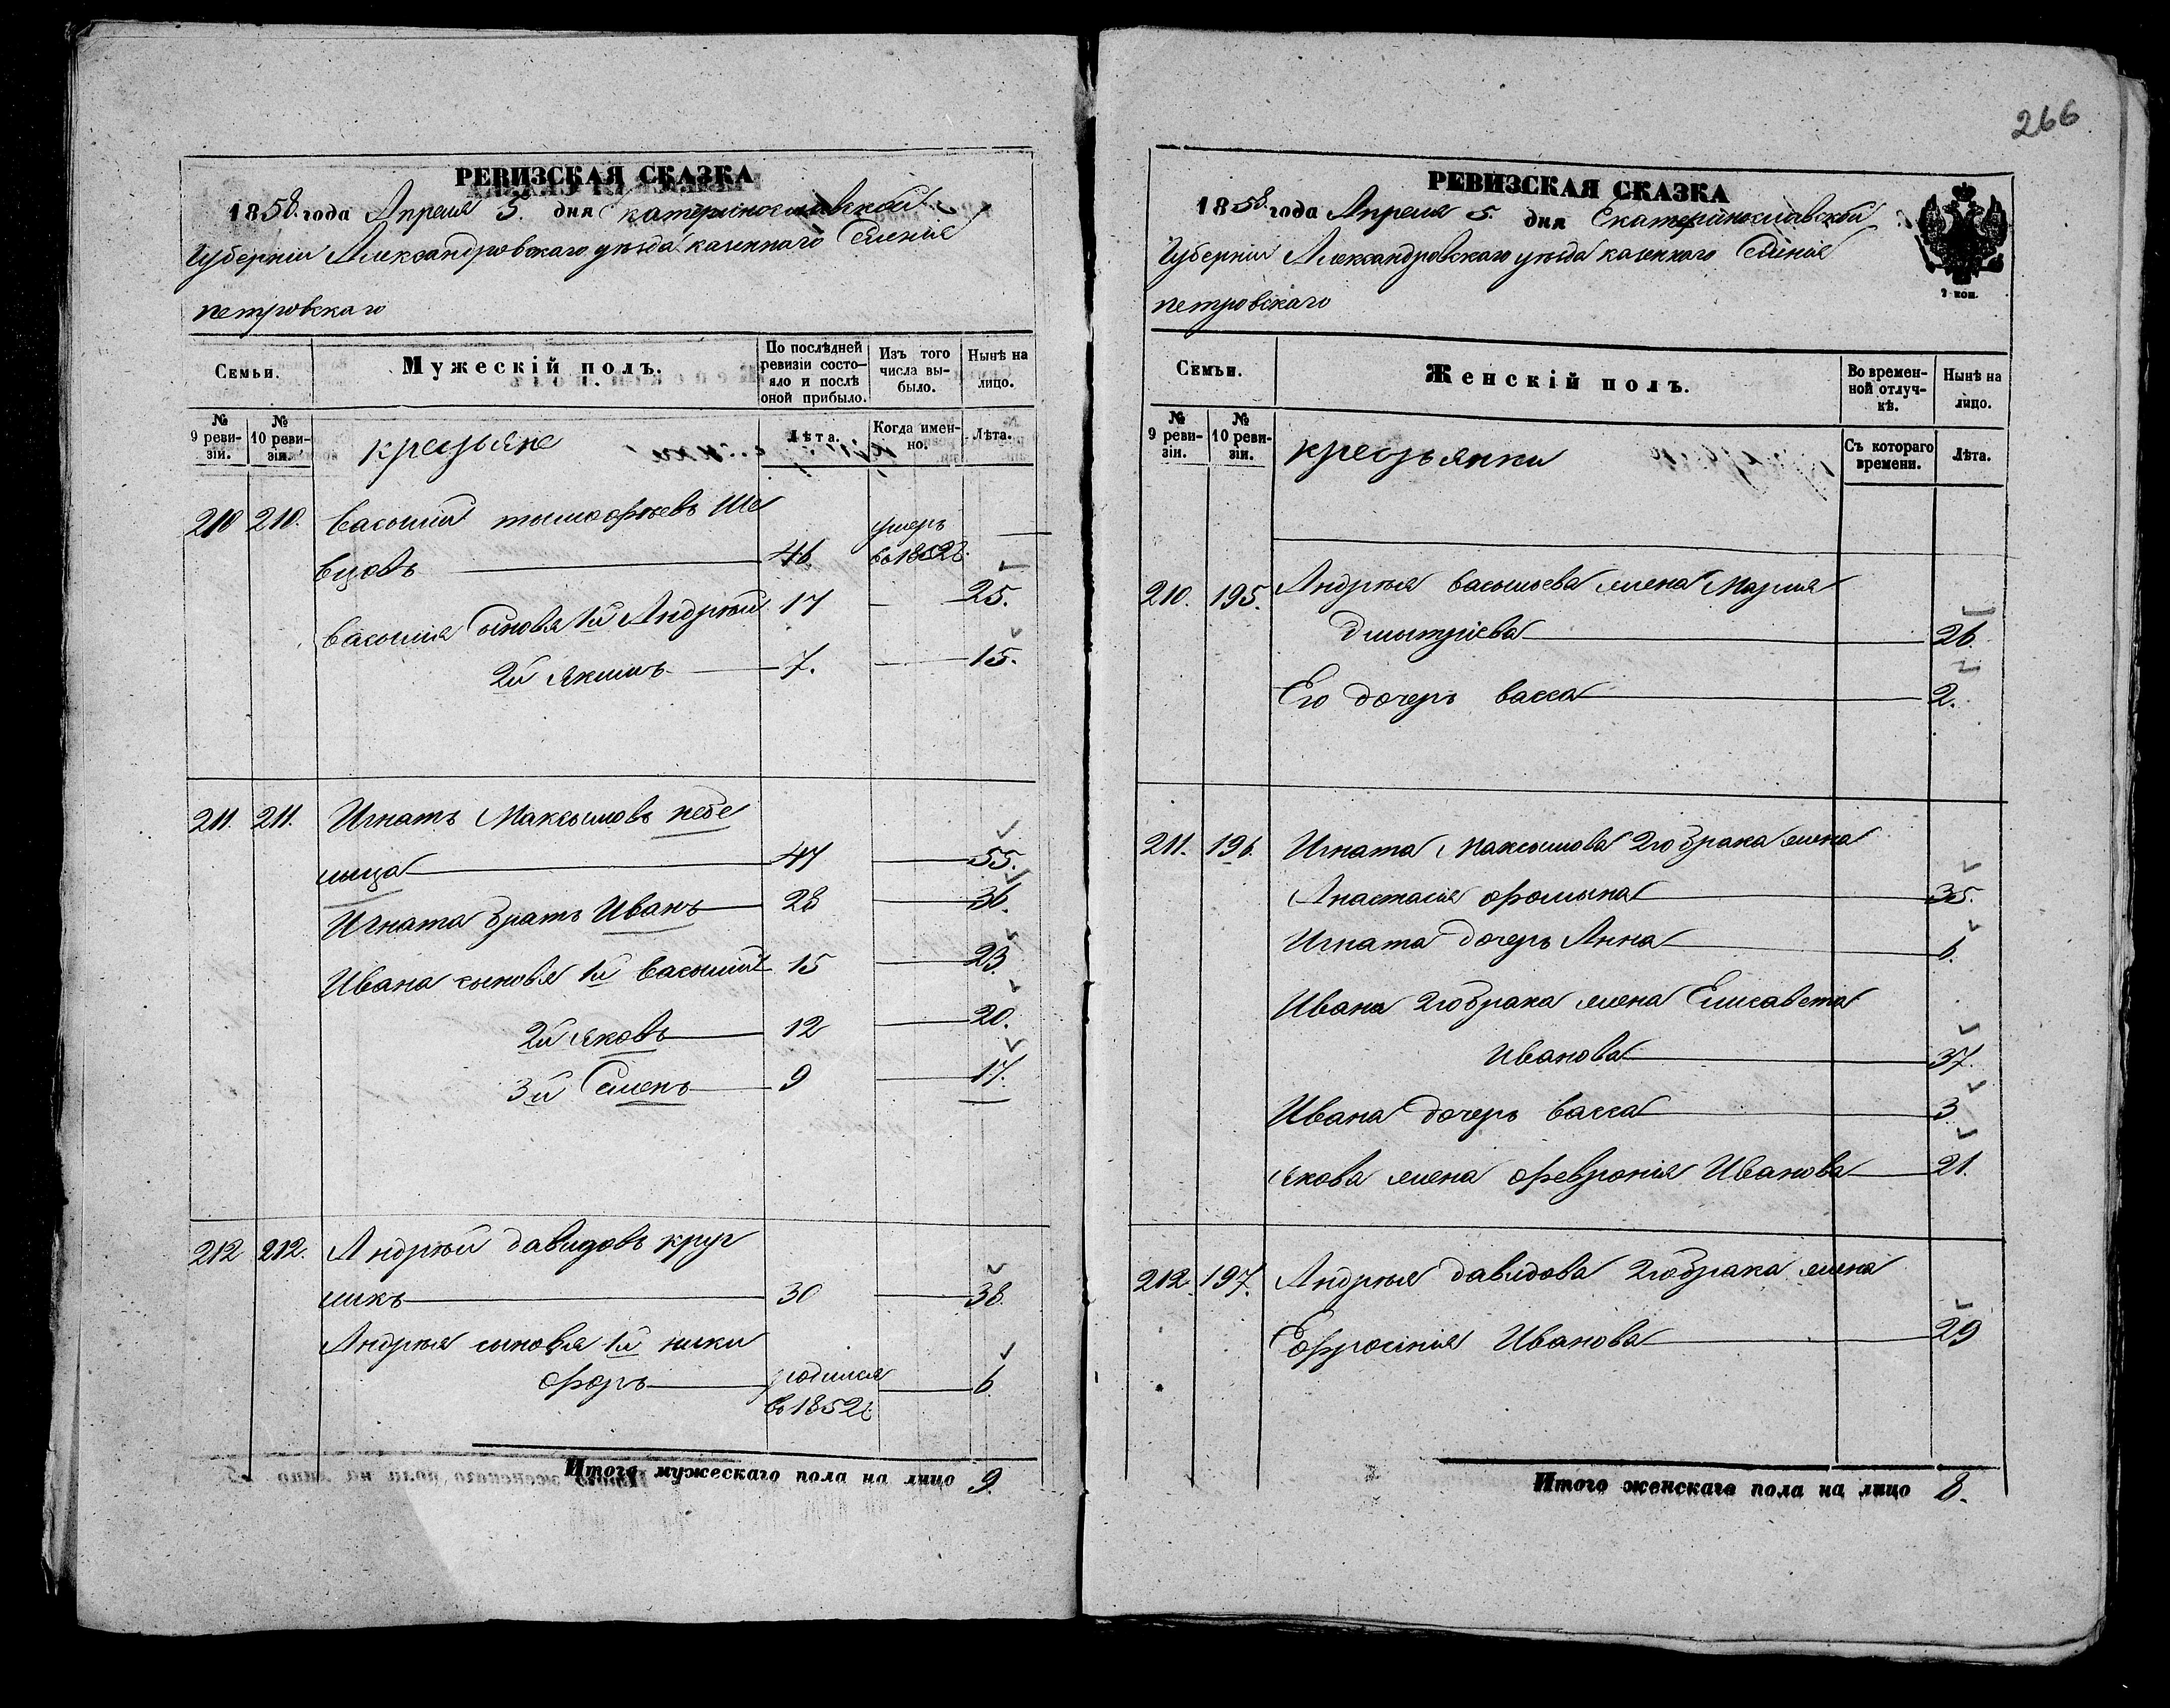 266
РЕВИЗСКАЯ СКАЗКА
1858 года Апреля 5. дня Екатеринославской
Губерніи Александровскаго уѣзда казеннаго Селенія
петровскаго
Семьи.
Мужескій полъ.
По послѣдней ревизіи состояло и послѣ оной прибыло.
Изъ того числа выбыло.
Нынѣ на лицо.
№ 9 ревизіи.
№ 10 ревизіи.
крестьяне
Лѣта.
Когда именно.
Лѣта.
210 210. Василій тымофѣевъ Ше
вцовъ 46. умеръ въ 1852г.
Василія Сыновья 1й Андрѣй 17 25.
2й Якимъ 7. 15.
211. 211. Игнатъ Максымовъ небе
лыца 47 55.
Игната братъ Иванъ 28 36.
Ивана сыновья 1й Василій 15 23.
2й Яковъ 12 20.
3й Семенъ 9 17.
212 212. Андрѣй давидовъ круг
ликъ 30 38.
Андрѣя сыновья 1й ники
форъ родился въ 1852г. 6.
Итого мужескаго пола на лицо 9.
РЕВИЗСКАЯ СКАЗКА
1858 года Апреля 5. дня Екатеринославской
Губерніи Александровскаго уѣзда казеннаго Селенія
петровскаго
2 коп.
Семьи.
Женскій полъ.
Во временной отлучкѣ.
Нынѣ на лицо.
№ 9 ревизіи.
№ 10 ревизіи.
крестьянки
Съ котораго времени.
Лѣта.
210. 195. Андрѣя Васильева жена Марія
Дмытріева 26.
Его дочерь васса 2.
211. 196. Игната Максымова 2го брака жена
Анастасія фомына 35.
Игната дочерь Анна 6.
Ивана 2го брака жена Елисавета
Иванова 37.
Ивана дочерь васса 3
Якова жена февронія Иванова 21.
212. 197. Андрѣя давидова 2го брака жена
Ефросінія Иванова 29
Итого женскаго пола на лицо 8.